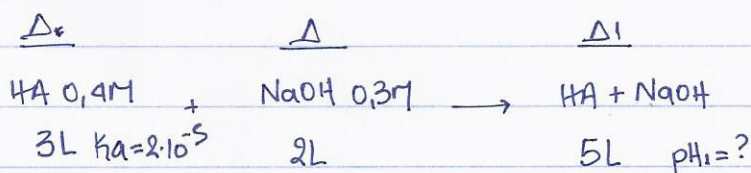 Δ₀ Δ Δ1
HA 0,4M + NaOH 0,3M → HA + NaOH
3L Ka=2·10⁻⁵ 2L 5L pH₁=?